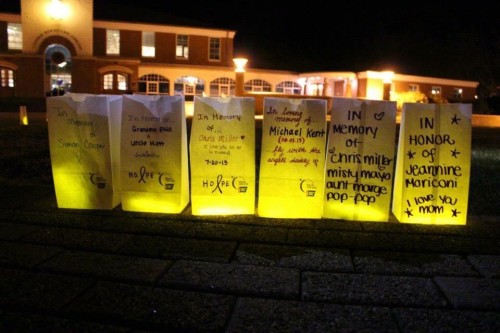 In Memory of
Simon Cooper
In Honor of
Grandma
Uncle Kent
In Memory
of...
Chris Miller
7-20-13
HOPE
In loving memory of
Michael Kent
fly with the
angels daddy
IN
Memory
of-
Chris miller
misty mayo
aunt marge
pop-pop
IN
HONOR
of
Jeannine
Mariconi
I love you
mom